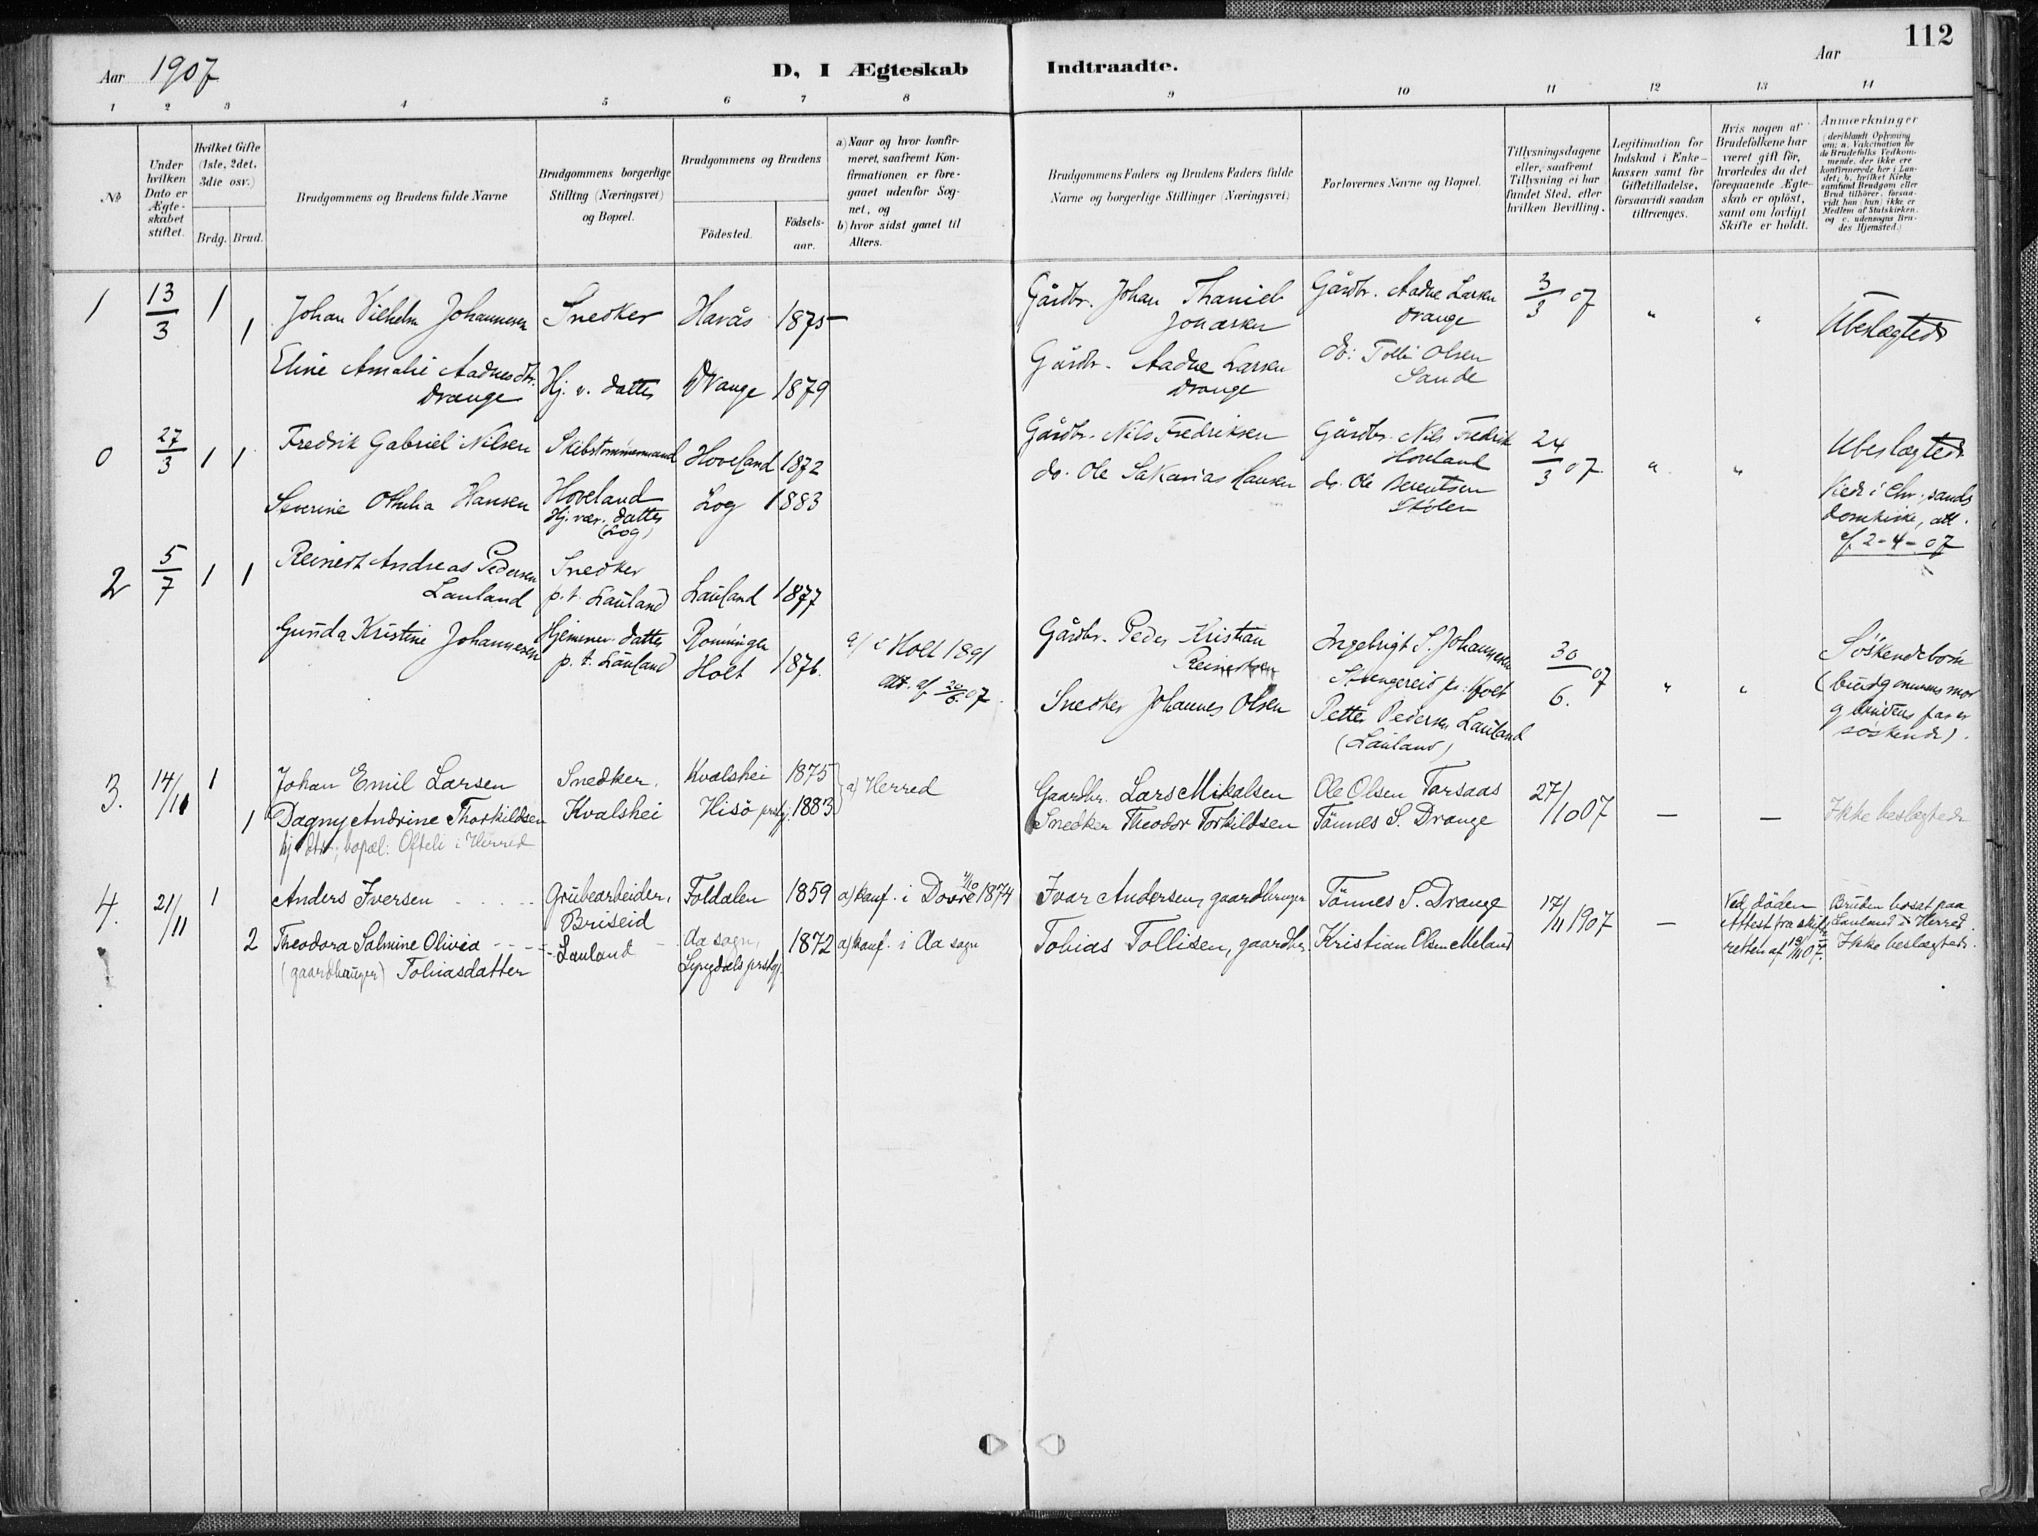 112
Aar 1907
D, I Ægteskab Indtraadte.
Aar
1 2 3 4 5 6 7 8 9 10 11 12 13 14
No
Under hvilken Dato er Ægteskabet stiftet.
Hvilket Gifte (1ste, 2det, 3die osv.)
Brdg. Brud.
Brudgommens og Brudens fulde Navne
Brudgommens borgerlige Stilling (Næringsvei) og Bopæl.
Brudgommens og Brudens
Fødested.
Fødselsaar.
a) Naar og hvor konfirmeret, saafremt Konfirmationen er foregaaet udenfor Sognet, og
b) hvor sidst gaaet til Alters.
Brudgommens Faders og Brudens Faders fulde Navne og borgerlige Stillinger (Næringsvei)
Forlovernes Navne og Bopæl.
Tillysningsdagene eller, saafremt Tillysning ei har fundet Sted, efter hvilken Bevilling.
Legitimation for Indskud i Enkekassen samt for Giftetilladelse, forsaavidt saadan tiltrænges.
Hvis nogen af Brudefolkene har været gift før, hvorledes da det foregaaende Ægteskab er opløst, samt om lovligt Skifte er holdt.
Anmærkninger (deriblandt Oplysning om: a. Vakcination for de Brudefolks Vedkommende, der ikke ere konfirmerede her i Landet; b. hvilket Kirkesamfund Brudgom eller Brud tilhører, forsaavidt han (hun) ikke er Medlem af Statskirken, og c. udensogns Brudes Hjemsted.)
1 13/3 1 Johan Vilhelm Johannesen Snedker Havås 1875 Gårdbr. Johan Thaniel Jonassen Gårdbr. Aadne Larsen Drange 3/3 07 " " Ubeslægtede
1 Eline Amalie Aadnesdtr. Drange Hj. v. datter Drange 1879 Gårdbr. Aadne Larsen Drange do: Tolli Olsen Sande
0 27/3 1 1 Fredrik Gabriel Nilsen Skibstømmermand Hoveland 1872 Gårdbr. Nils Fredriksen Gårdbr. Nils Fredrik Hoveland 24/3 07. " " Ubeslægtede
Severine Othilia Hansen Hoveland Hj. vær. datter (Log) Log 1883 do. Ole Sakarias Hansen do. Ole Berentsen Stölen Viede i Chr.sands Domkirke, att. af 2-4-07
2 5/7 1 1 Reinert Andreas Pedersen Lauland Snedker p.t. Lauland Lauland 1877 Gårdbr. Peder Kristian Reinertsen Ingebrigt S. Johannesen Holt 30/6. 07 " " Söskendebörn (brudgommens mor og brudens far er söskende).
Gunda Kristine Johannesen Hjemmev. datter p.t. Lauland Holt 1876. a/ i Holt 1891 att. af 20/6 07. Snedker Johannes Olsen Petter Pedersen Lauland (Lauland)
3. 14/11 1 Johan Emil Larsen Snedker. Kvalshei 1875 a) Herred Gaardbr. Lars Mikalsen Ole Olsen Tarsaas 27/10 07 — — Ikke beslægtede
1 Dagny Andrine Thorkildsen Kvalshei Hisö prstgj. 1883 Snedker Theodor Torkildsen Tönnes S. Drange
hj dtr; bopæl: Ofteli i Herred
4. 21/11 1 Anders Iversen Grubearbeider, Briseid Foldalen 1859 a) konf. i Dovre 1874 Ivar Andersen, gaardbruger Tönnes S. Drange 17/11 1907 — Ved döden Attest fra skifteretten af 19/11 07. Bruden bosat paa Lauland i Herred. Ikke beslægtede.
2 Theodora Salmine Olivia Tobiasdatter (gaardbruger) Lauland Aa sogn, Lyngdals prstgj. 1872 a) konf. i Aa sogn Tobias Tollisen, gaardbr. Kristian Olsen Meland